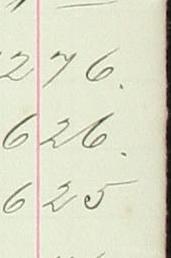 276.
626.
625